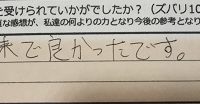 を受けられていかがでしたか？（ズバリ10
な感想が、私達の何よりの力となり今後の参考となり
来て良かったです。